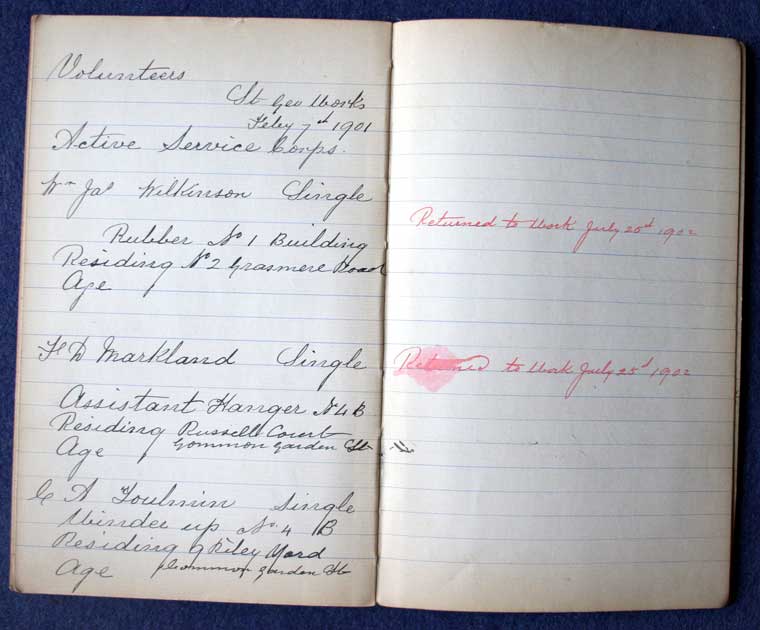 Volunteers
St Geo Works
Feby 7th 1901
Active Service Corps.
Wm Jas Wilkinson Single
Rubber No 1 Building
Residing No 2 Grasmere Road
Age
F D Markland Single
Assistant Hanger No 4 B
Residing Russell Court
Common Garden St
Age
C A Toulmin Single
Winder up No. 4 B
Residing Riley Yard
Common Garden St
Age
Returned to Work July 25th 1902
Returned to Work July 25th 1902